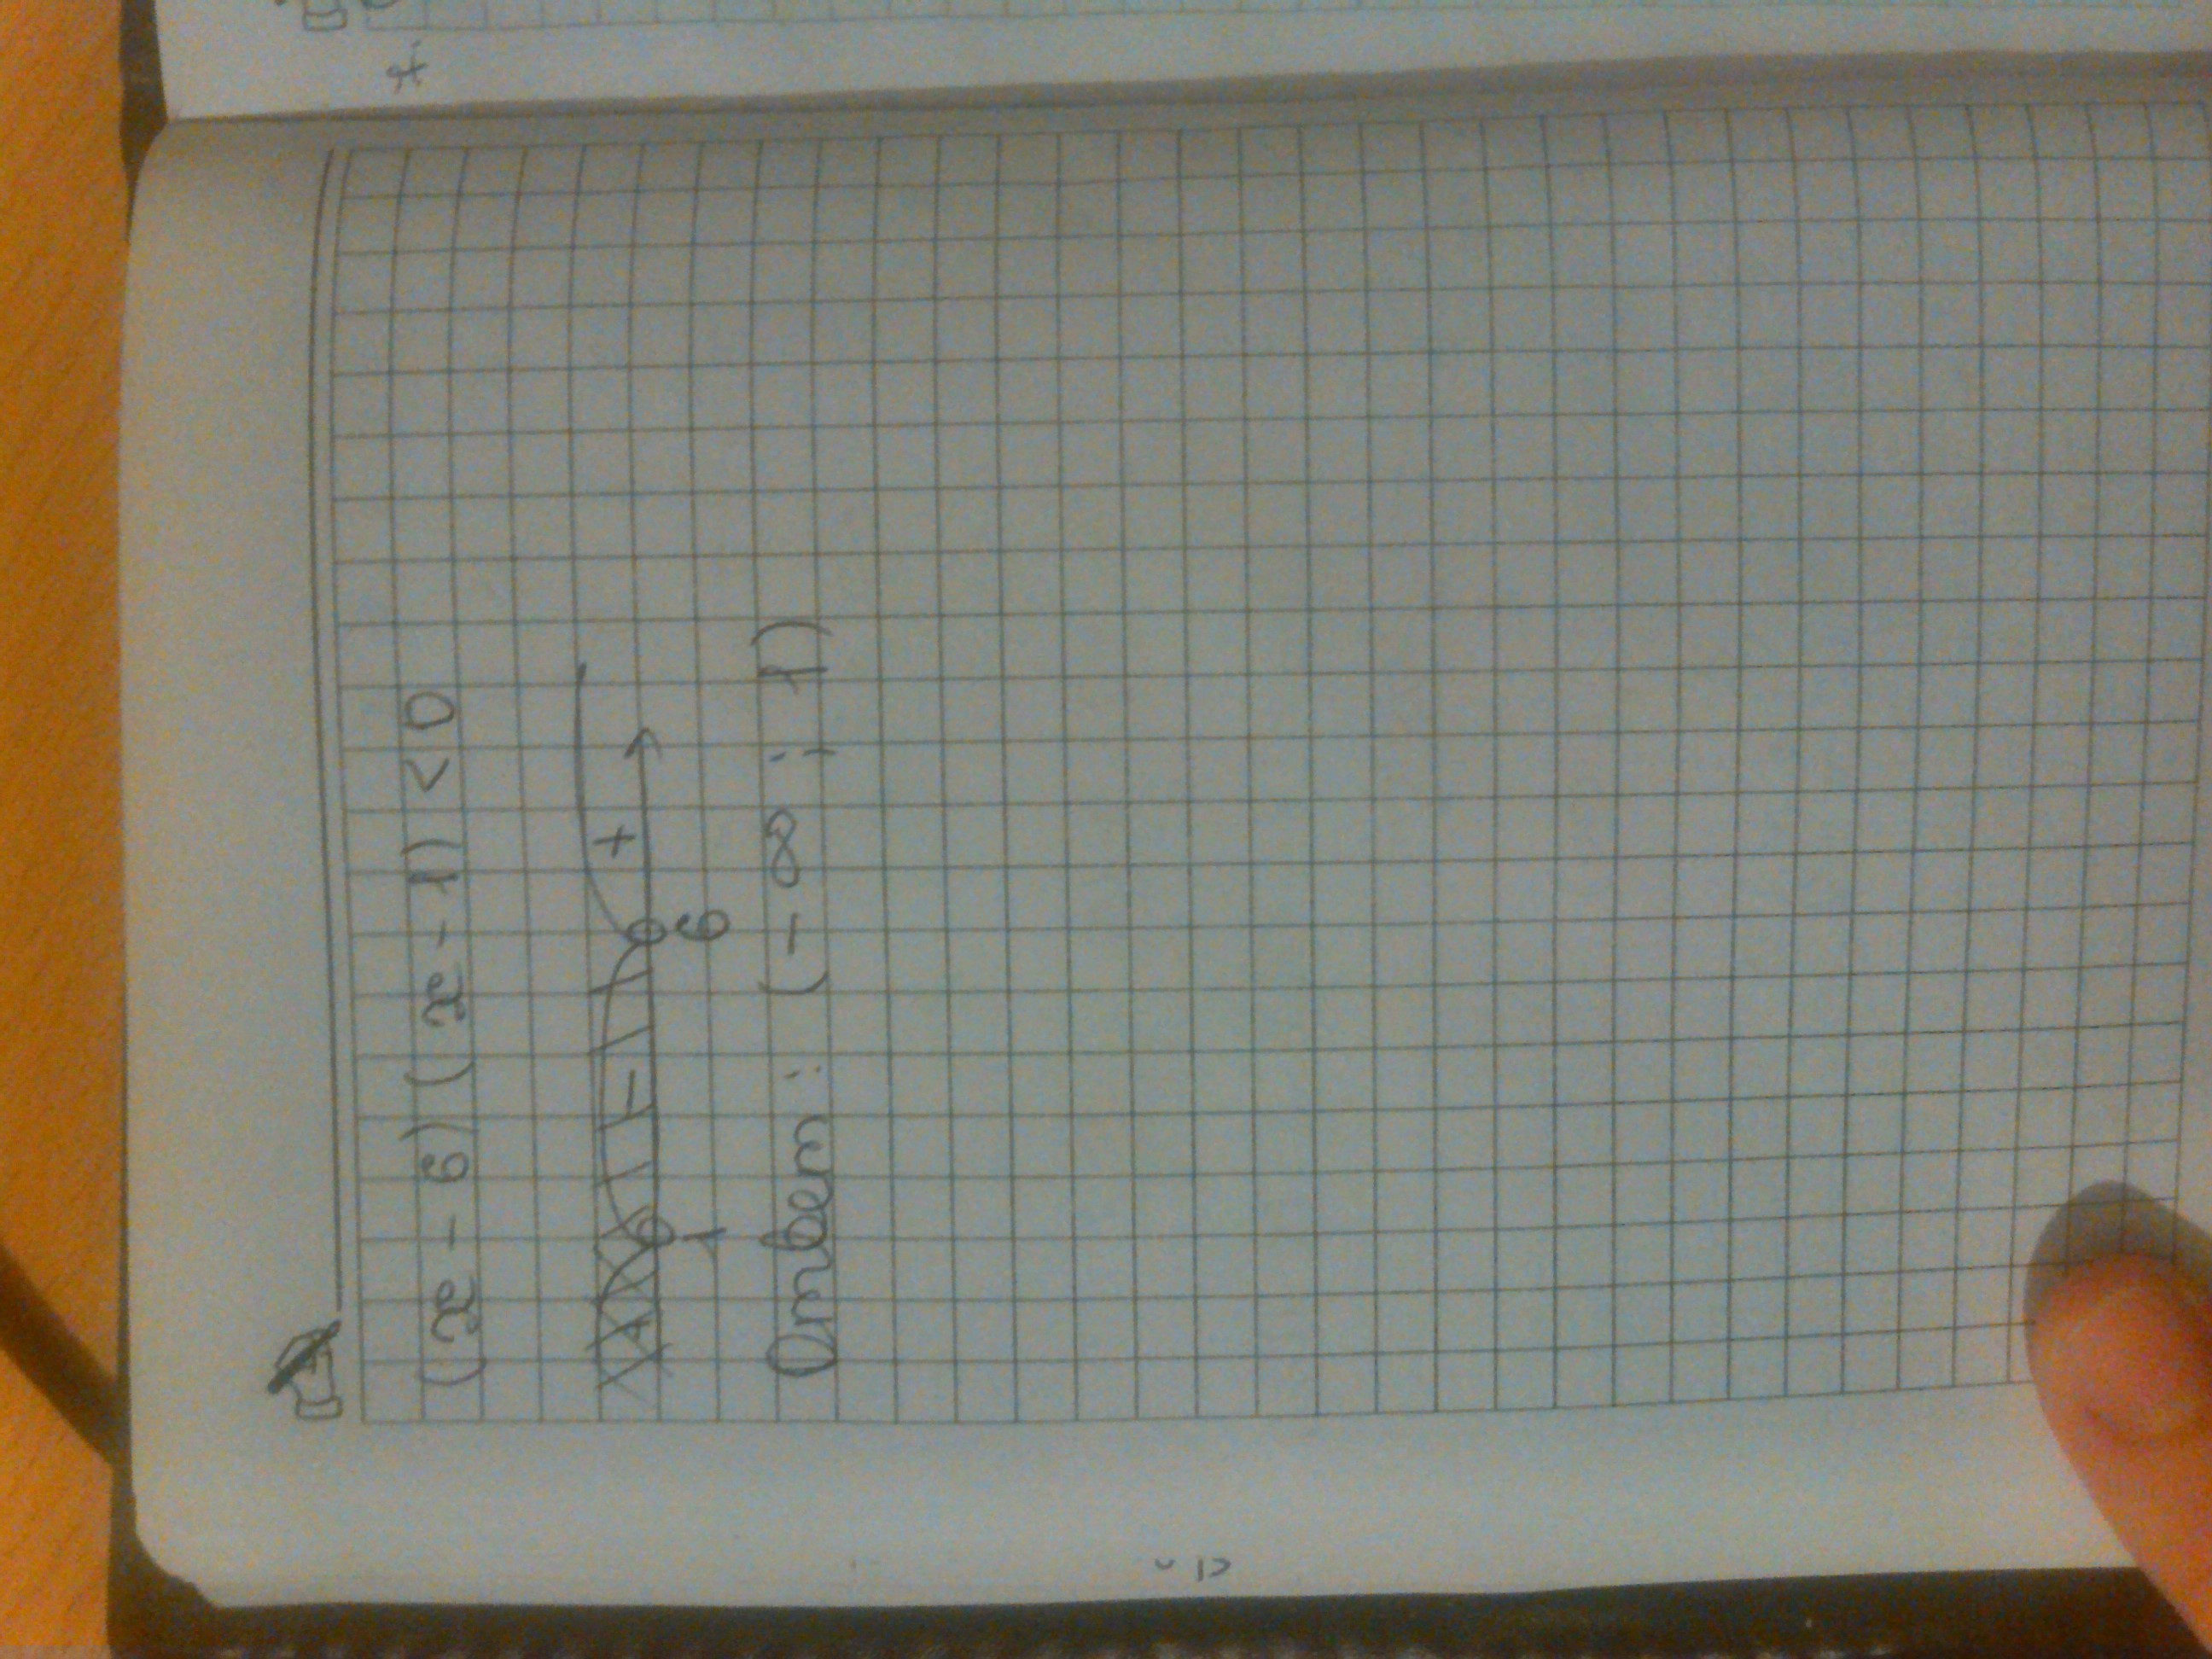 (x - 6)(x - 1) < 0
+ - +
1 6
Ответ: (-∞; 1)